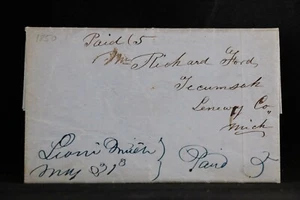 1850
Paid (5
Mr Richard Ford
Tecumseh
Lenewy Co
Mich
Leoni Mich }
May 31st } Paid 5